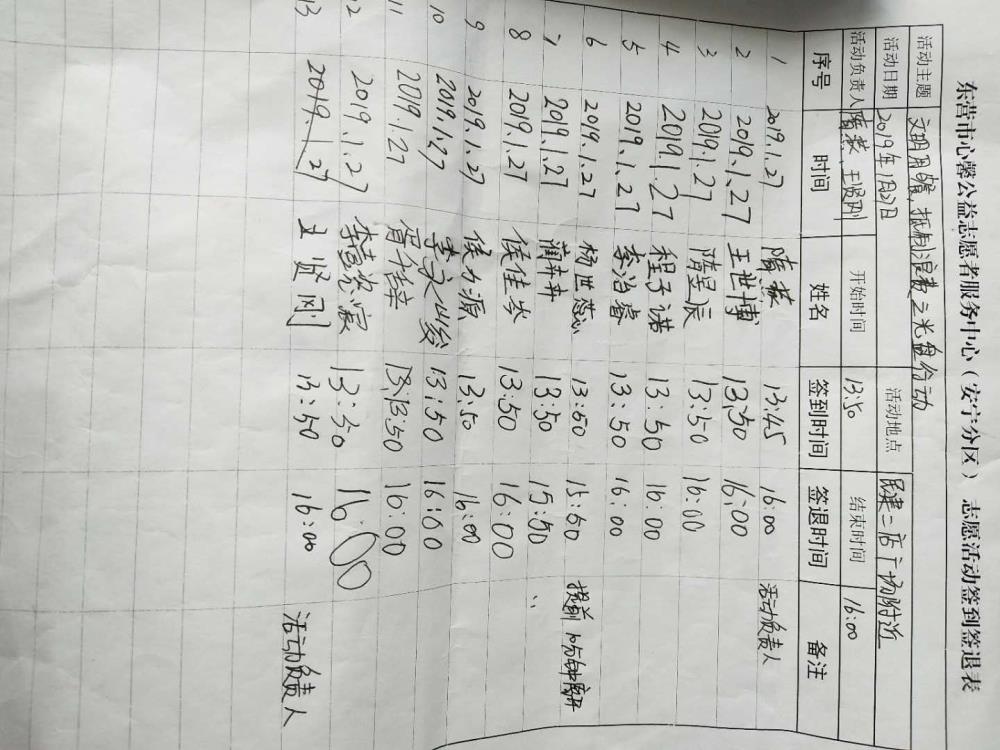 东营市心馨公益志愿者服务中心（安宁分区） 志愿活动签到签退表
活动主题 文明用餐，抵制浪费之光盘行动
活动日期 2019年1月27日 活动地点 民建二店广场附近
活动负责人 隋燕、王贤刚 开始时间 13:50 结束时间 16:00
序号 时间 姓名 签到时间 签退时间 备注
1 2019.1.27 隋燕 13:45 16:00 活动负责人
2 2019.1.27 王世博 13:50 16:00
3 2019.1.27 隋昱辰 13:50 16:00
4 2019.1.27 程子诺 13:50 16:00
5 2019.1.27 李治睿 13:50 16:00
6 2019.1.27 杨世蕊 13:50 15:50 提前10分钟离开
7 2019.1.27 蔺卉卉 13:50 15:50 ,,
8 2019.1.27 侯佳岑 13:50 16:00
9 2019.1.27 侯力源 13:50 16:00
10 2019.1.27 李文峻 13:50 16:00
11 2019.1.27 13:50 16:00
12 2019.1.27 13:50 16:00
13 2019.1.27 王贤刚 13:50 16:00 活动负责人